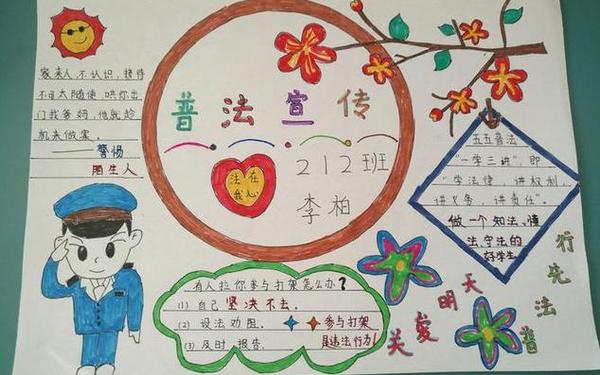 家来人,不认识,接待
不可太随便,哄你出
门找爷妈,他就趁
机来做案。
——警惕
陌生人
普法宣传
法在我心
212班
李柏
五五普法
"一学三讲",即
"学法律,讲权利,
讲义务,讲责任"。
做一个知法、懂
法、守法的
好学生
有人拉你参与打架怎么办?
(1) 自己坚决不去。
(2) 设法劝阻。
(3) 及时报告。
参与打架
是违法行为!
关爱明天
普法先行